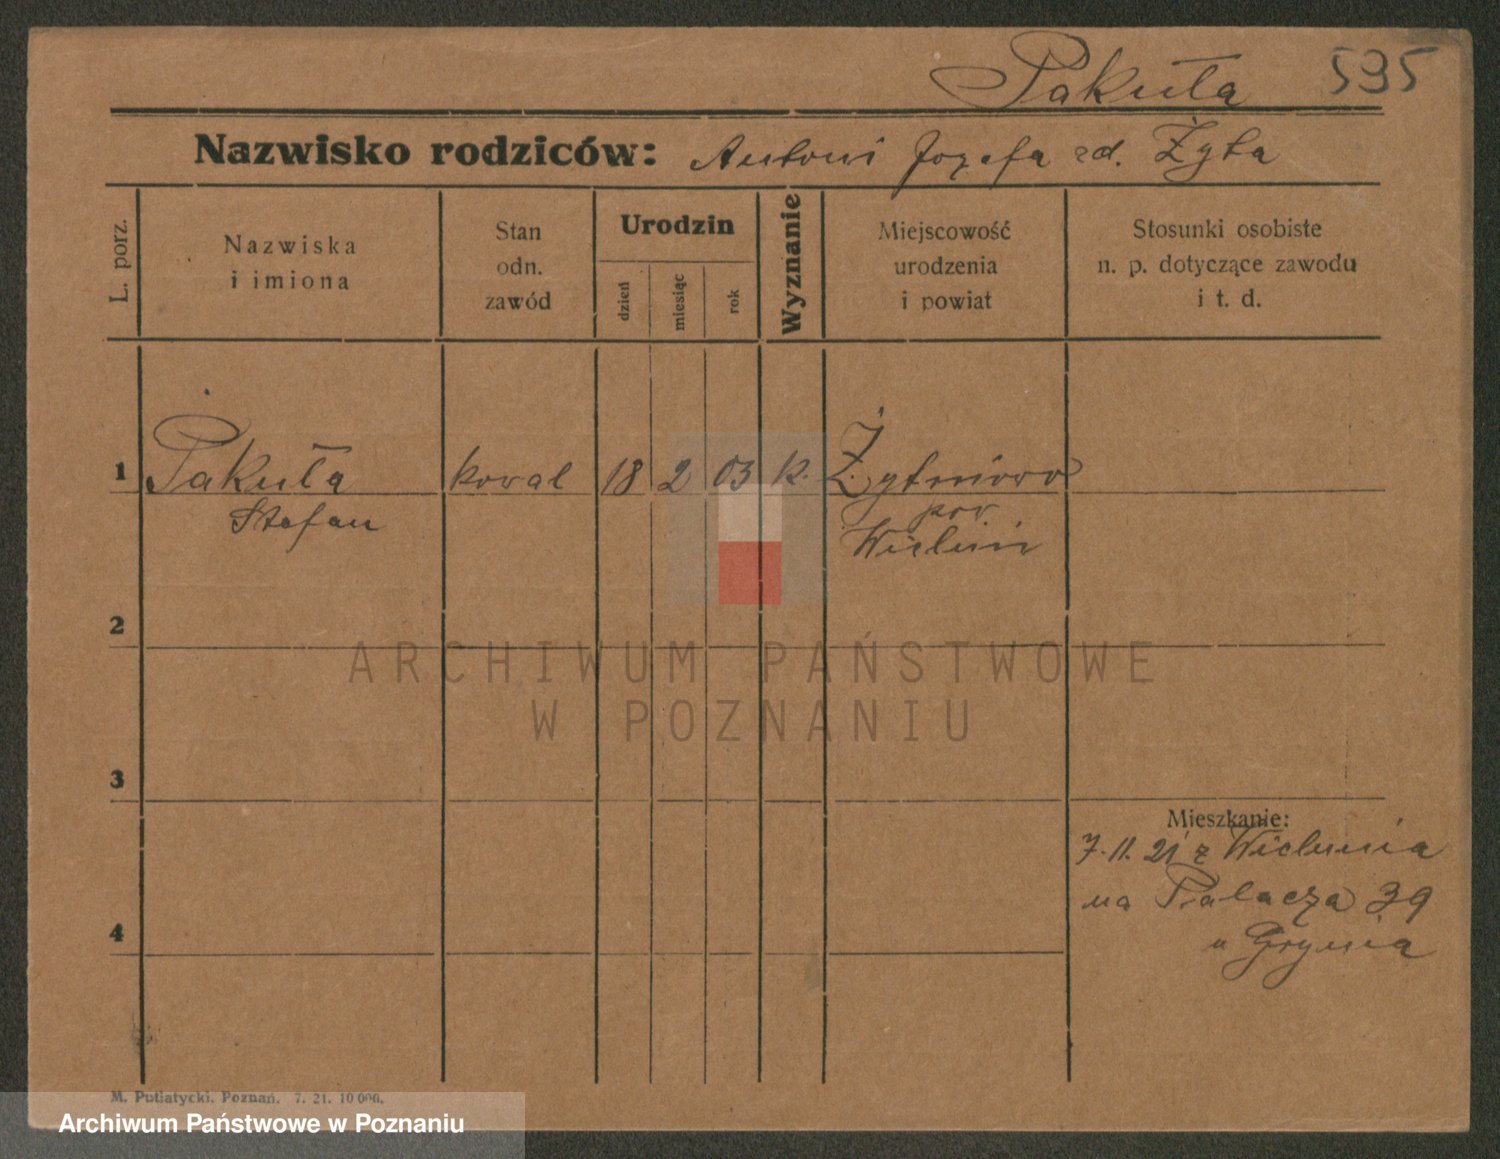 Pakuła 595
Nazwisko rodziców: Antoni Jozefa zd. Żyła
L. porz.
Nazwiska
i imiona
Stan
odn.
zawód
Urodzin
dzień
miesiąc
rok
Wyznanie
Miejscowość
urodzenia
i powiat
Stosunki osobiste
n. p. dotyczące zawodu
i t. d.
1 Pakuła koval 18 2 03 k. Żytniovo
Stefan pov
Wieluń
2
ARCHIWUM PAŃSTWOWE
W POZNANIU
3
Mieszkanie:
7.11.21 z Wielunia
na Palacza 39
4
u
M. Putiatycki, Poznań. 7. 21. 10 000.
Archiwum Państwowe w Poznaniu